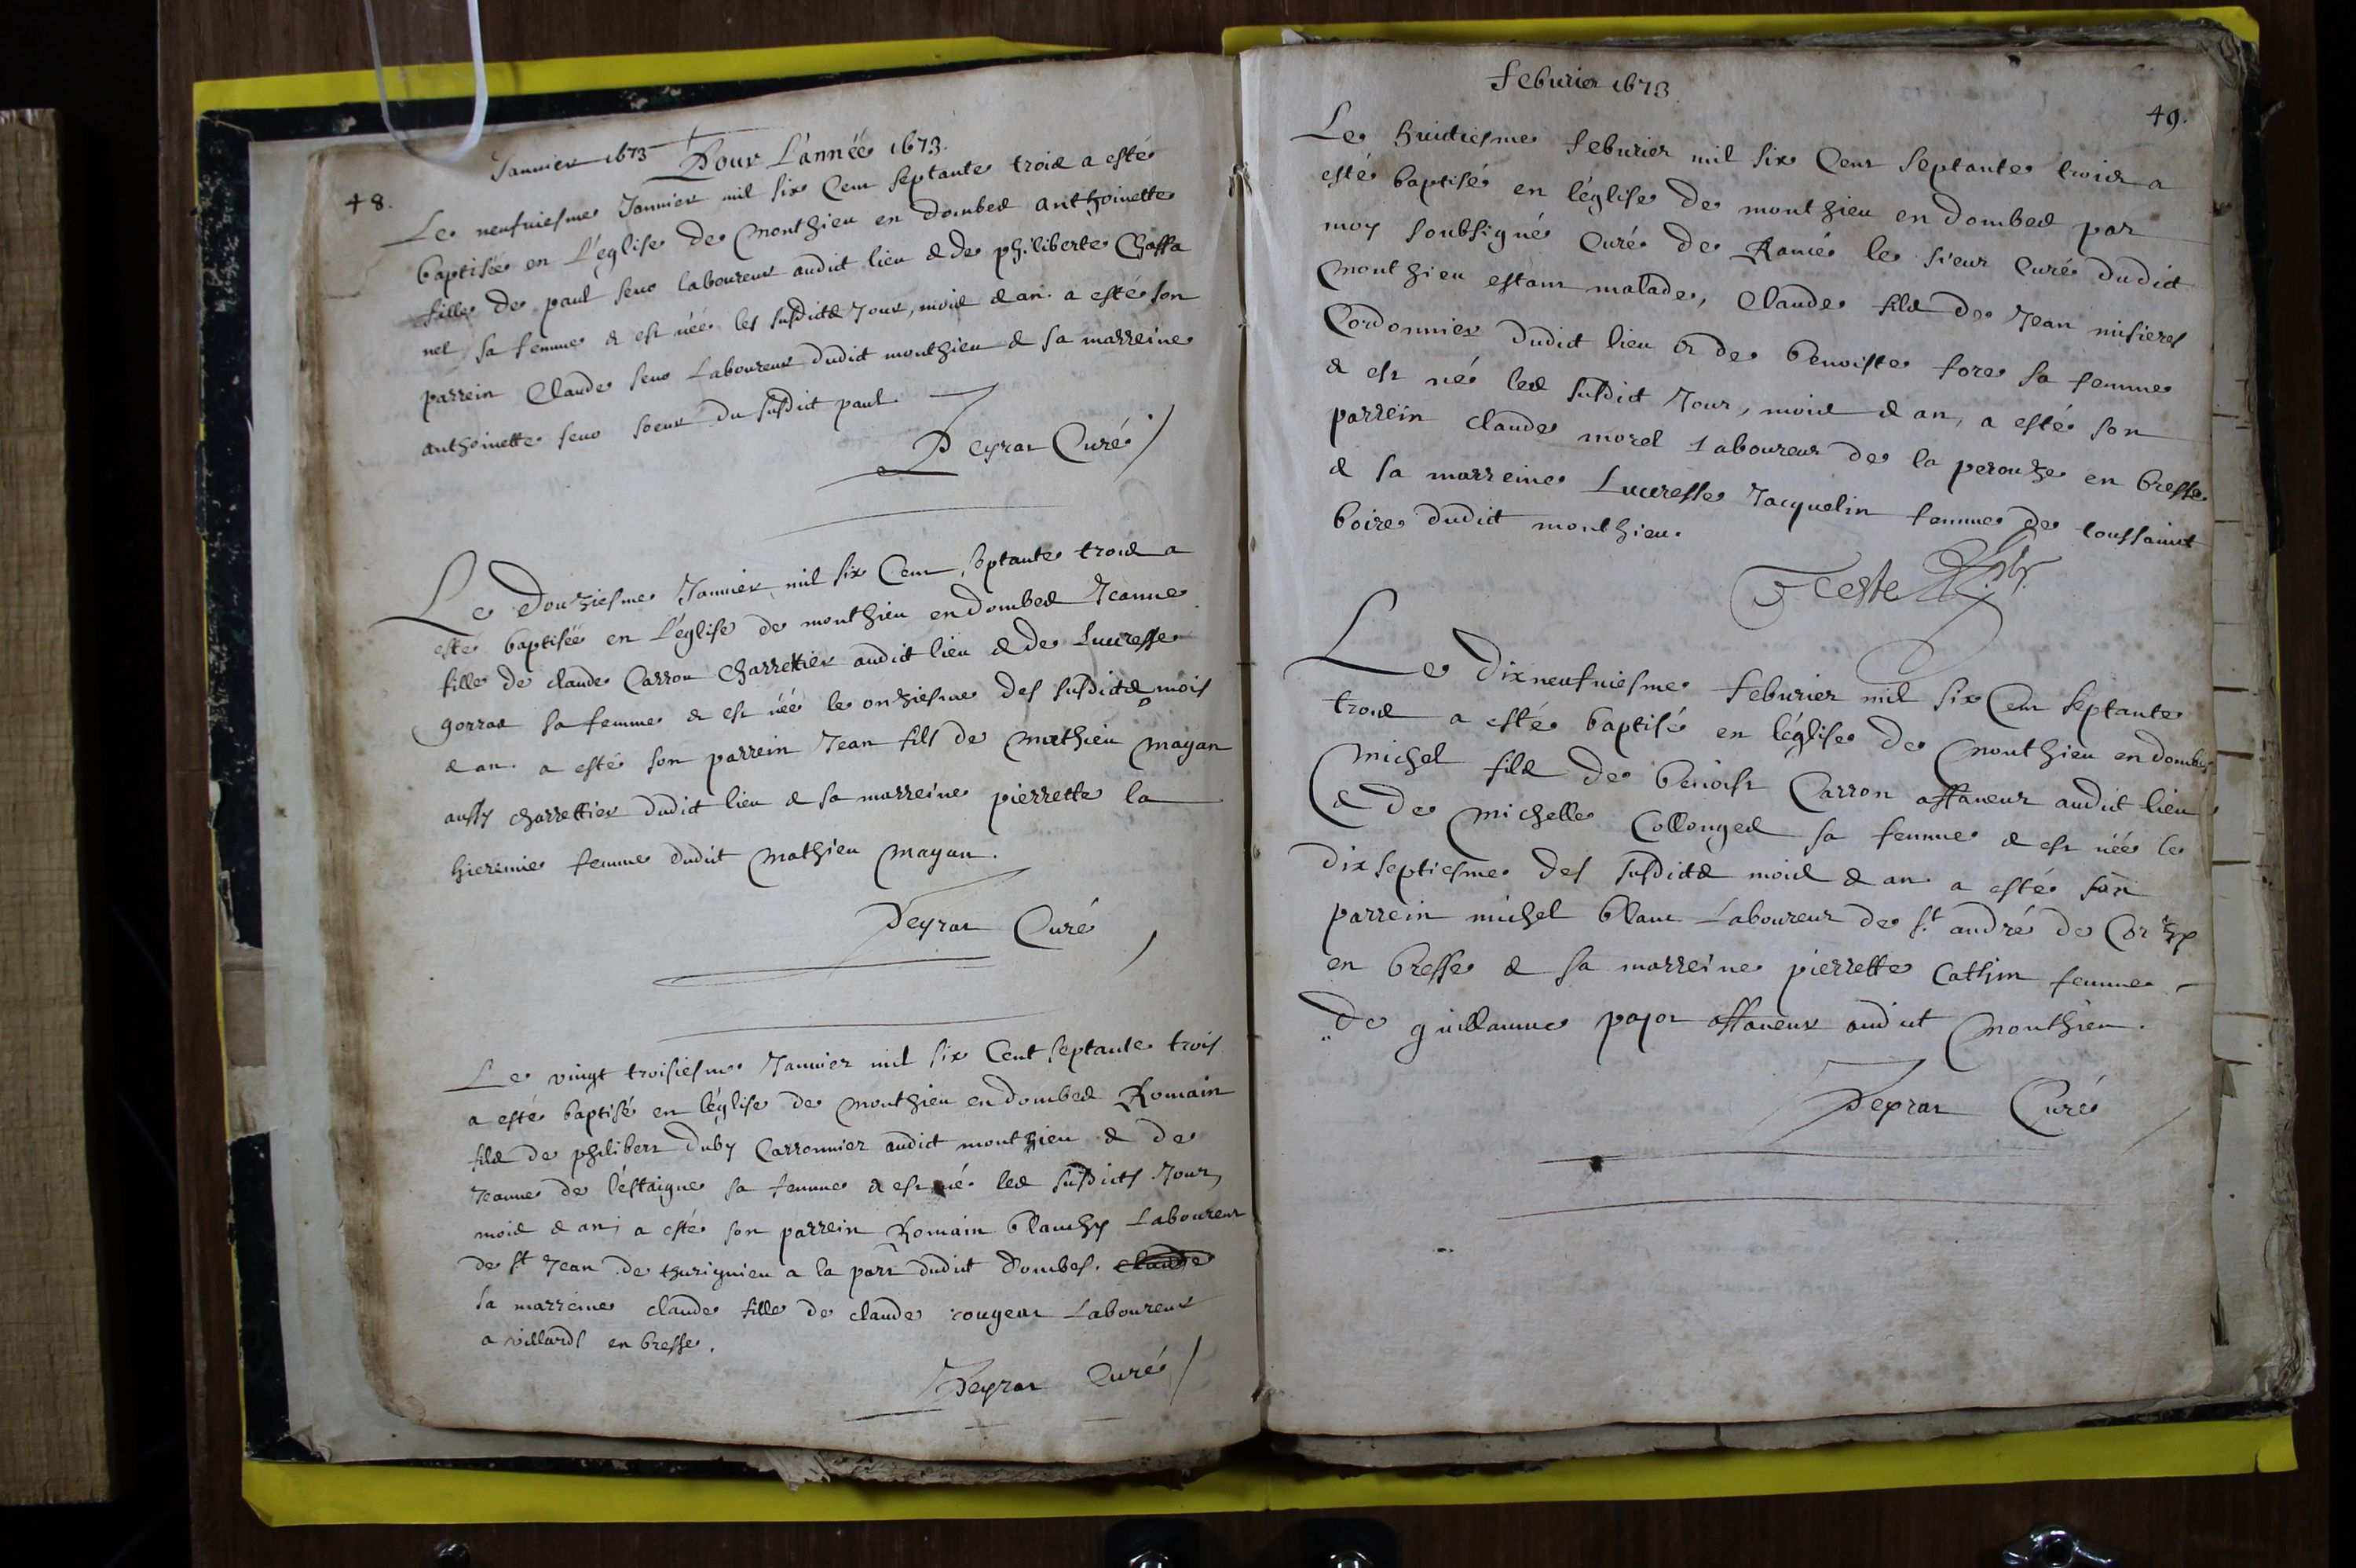 Januier 1673 Pour L'année 1673.
48.
Le neufuiesme Januier mil six Cent septante trois a esté
baptisée en L'église de Monthieu en dombes anthoinette
fille de paul seuo laboureur audict lieu & de philiberte Chassa
nel sa femme & est née les susdicts Jour, mois & an. a esté son
parrein Claude seuo Laboureur dudict monthieu & sa marreine
anthoinette seuo soeur du susdict paul.
Peyrat Curé
Le Douziesme Januier mil six Cent septante trois a
esté baptisée en L'église de monthieu en dombes Jeanne
fille de claude Carron Charrettier audict lieu & de Lucresse
gorras sa femme & est née le onziesme des susdicts mois
& an. a esté son parrein Jean fils de Mathieu Mayan
aussy charrettier dudict lieu & sa marreine pierrette la
hieremie femme dudict Mathieu Mayan.
Peyrat Curé
Le vingt troisiesme Januier mil six Cent septante trois
a esté baptisé en l'église de Monthieu en dombes Romain
fils de philibert duby Carronnier audict monthieu & de
Jeanne de l'estaigne sa femme & est né les susdicts Jour,
mois & an; a esté son parrein Romain blanchy Laboureur
de st Jean de thurignieu a la part dudict dombes. claude
sa marreine claude fille de claude rougeat Laboureur
a villards en bresse.
Peyrat Curé
Feburier 1673
49.
Le huictiesme feburier mil six Cent septante trois a
esté baptisé en l'église de monthieu en dombes par
moy soubsigné Curé de Rancé le sieur Curé dudict
Monthieu estant malade, Claude fils de Jean misieres
Cordonnier dudict lieu & de benoiste fore sa femme
& est né les susdict Jour, mois & an, a esté son
parrein claude morel Laboureur de la perouze en bresse
& sa marreine Lucresse Jacquelin femme de toussainct
boire dudict monthieu.
Teste
Le Dixneufuiesme feburier mil six Cent septante
trois a esté baptisé en l'église de Monthieu en dombes
Michel fils de benoist Carron affaneur audict lieu
& de Michelle Collonges sa femme & est née le
dixseptiesme des susdicts mois & an. a esté son
parrein michel blanc Laboureur de st andré de Corzy
en bresse & sa marreine pierrette Cathin femme
de guillaume pajot affaneur audict Monthieu.
Peyrat Curé